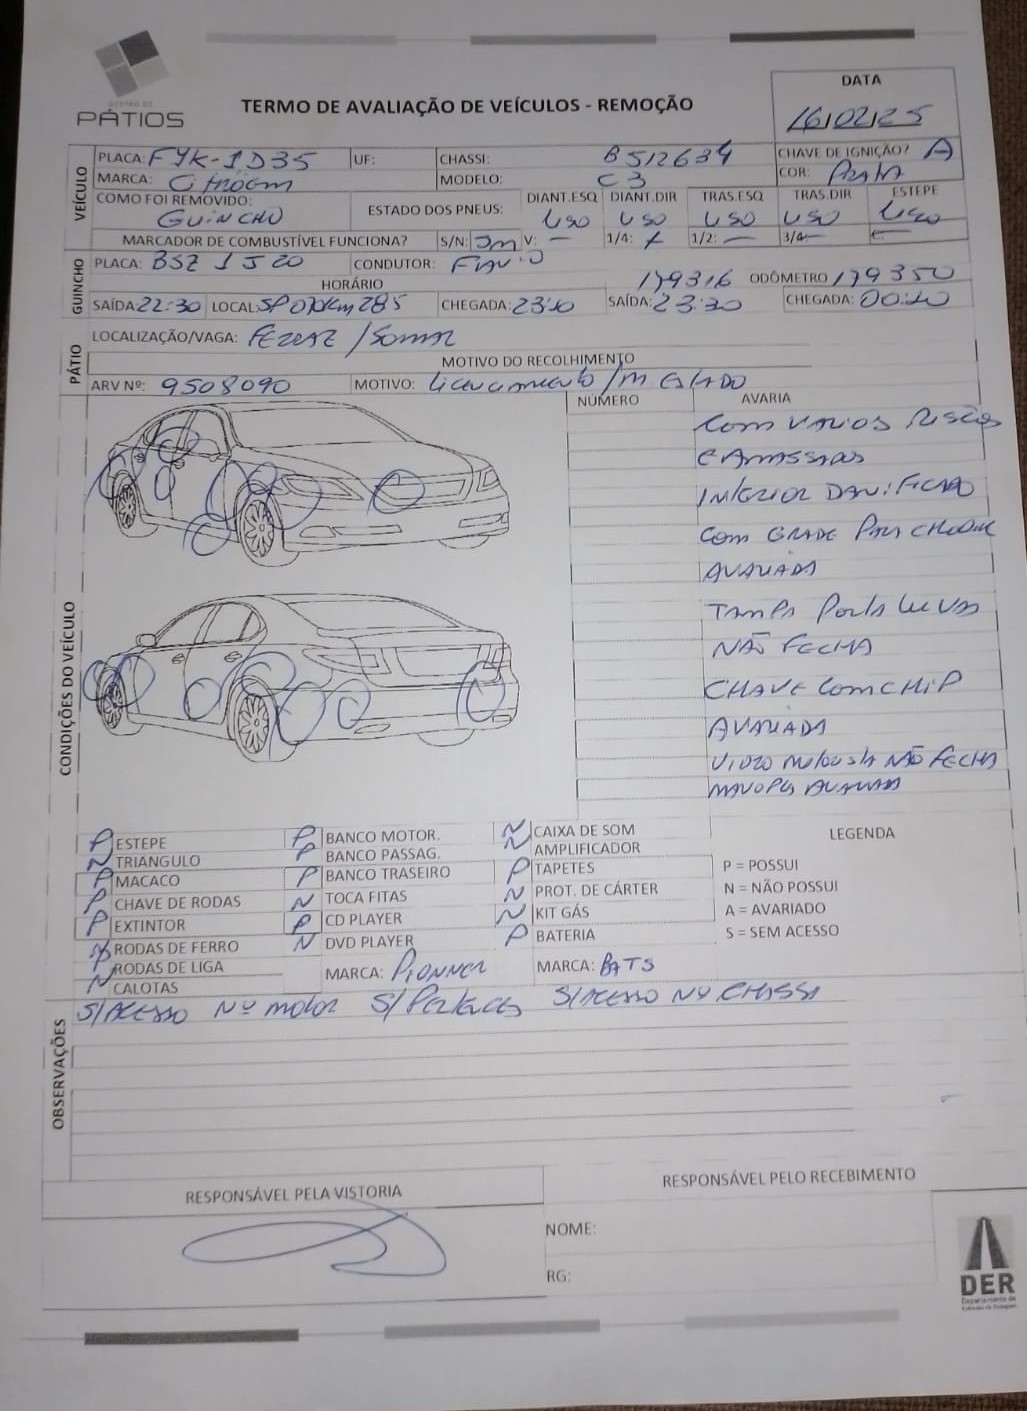 GESTÃO DE
PÁTIOS
TERMO DE AVALIAÇÃO DE VEÍCULOS - REMOÇÃO
DATA
16/02/25
VEÍCULO
PLACA: FYK-1D35 UF: CHASSI: B512634 CHAVE DE IGNIÇÃO? A
MARCA: Citroem MODELO: C3 COR: PRATA
COMO FOI REMOVIDO: ESTADO DOS PNEUS: DIANT.ESQ DIANT.DIR TRAS.ESQ TRAS.DIR ESTEPE
GUINCHO USO USO USO USO USO
MARCADOR DE COMBUSTÍVEL FUNCIONA? S/N: V: — 1/4: 1/2: — 3/4
GUINCHO
PLACA: BSZ 1J20 CONDUTOR: FLAVIO
HORÁRIO 179316 ODÔMETRO 179350
SAÍDA: 22:30 LOCAL: SP Km 285 CHEGADA: 23:10 SAÍDA: 23:30 CHEGADA:
PÁTIO
LOCALIZAÇÃO/VAGA:
MOTIVO DO RECOLHIMENTO
ARV Nº: 9508090 MOTIVO: Licenciamento / M ESTADO
CONDIÇÕES DO VEÍCULO
NÚMERO AVARIA
COM VARIOS RISCOS
E AMASSADOS
INTERIOR DANIFICADO
COM GRADE PARA CHOQUE
AVARIADA
TAMPA PORTA LUVAS
NÃO FECHA
CHAVE COM CHIP
AVARIADA
VIDRO MOTORISTA NÃO FECHA
AVARIADA
P ESTEPE P BANCO MOTOR. N CAIXA DE SOM LEGENDA
N TRIANGULO P BANCO PASSAG. N AMPLIFICADOR
P MACACO P BANCO TRASEIRO P TAPETES P = POSSUI
P CHAVE DE RODAS N TOCA FITAS N PROT. DE CÁRTER N = NÃO POSSUI
P EXTINTOR P CD PLAYER N KIT GÁS A = AVARIADO
N RODAS DE FERRO N DVD PLAYER P BATERIA S = SEM ACESSO
P RODAS DE LIGA MARCA: PIONNER MARCA: BATS
N CALOTAS
OBSERVAÇÕES
S/ACESSO Nº MOTOR S/PERTENCES S/ACESSO Nº CHASSI
RESPONSÁVEL PELA VISTORIA
RESPONSÁVEL PELO RECEBIMENTO
NOME:
RG:
DER
Departamento de
Estradas de Rodagem